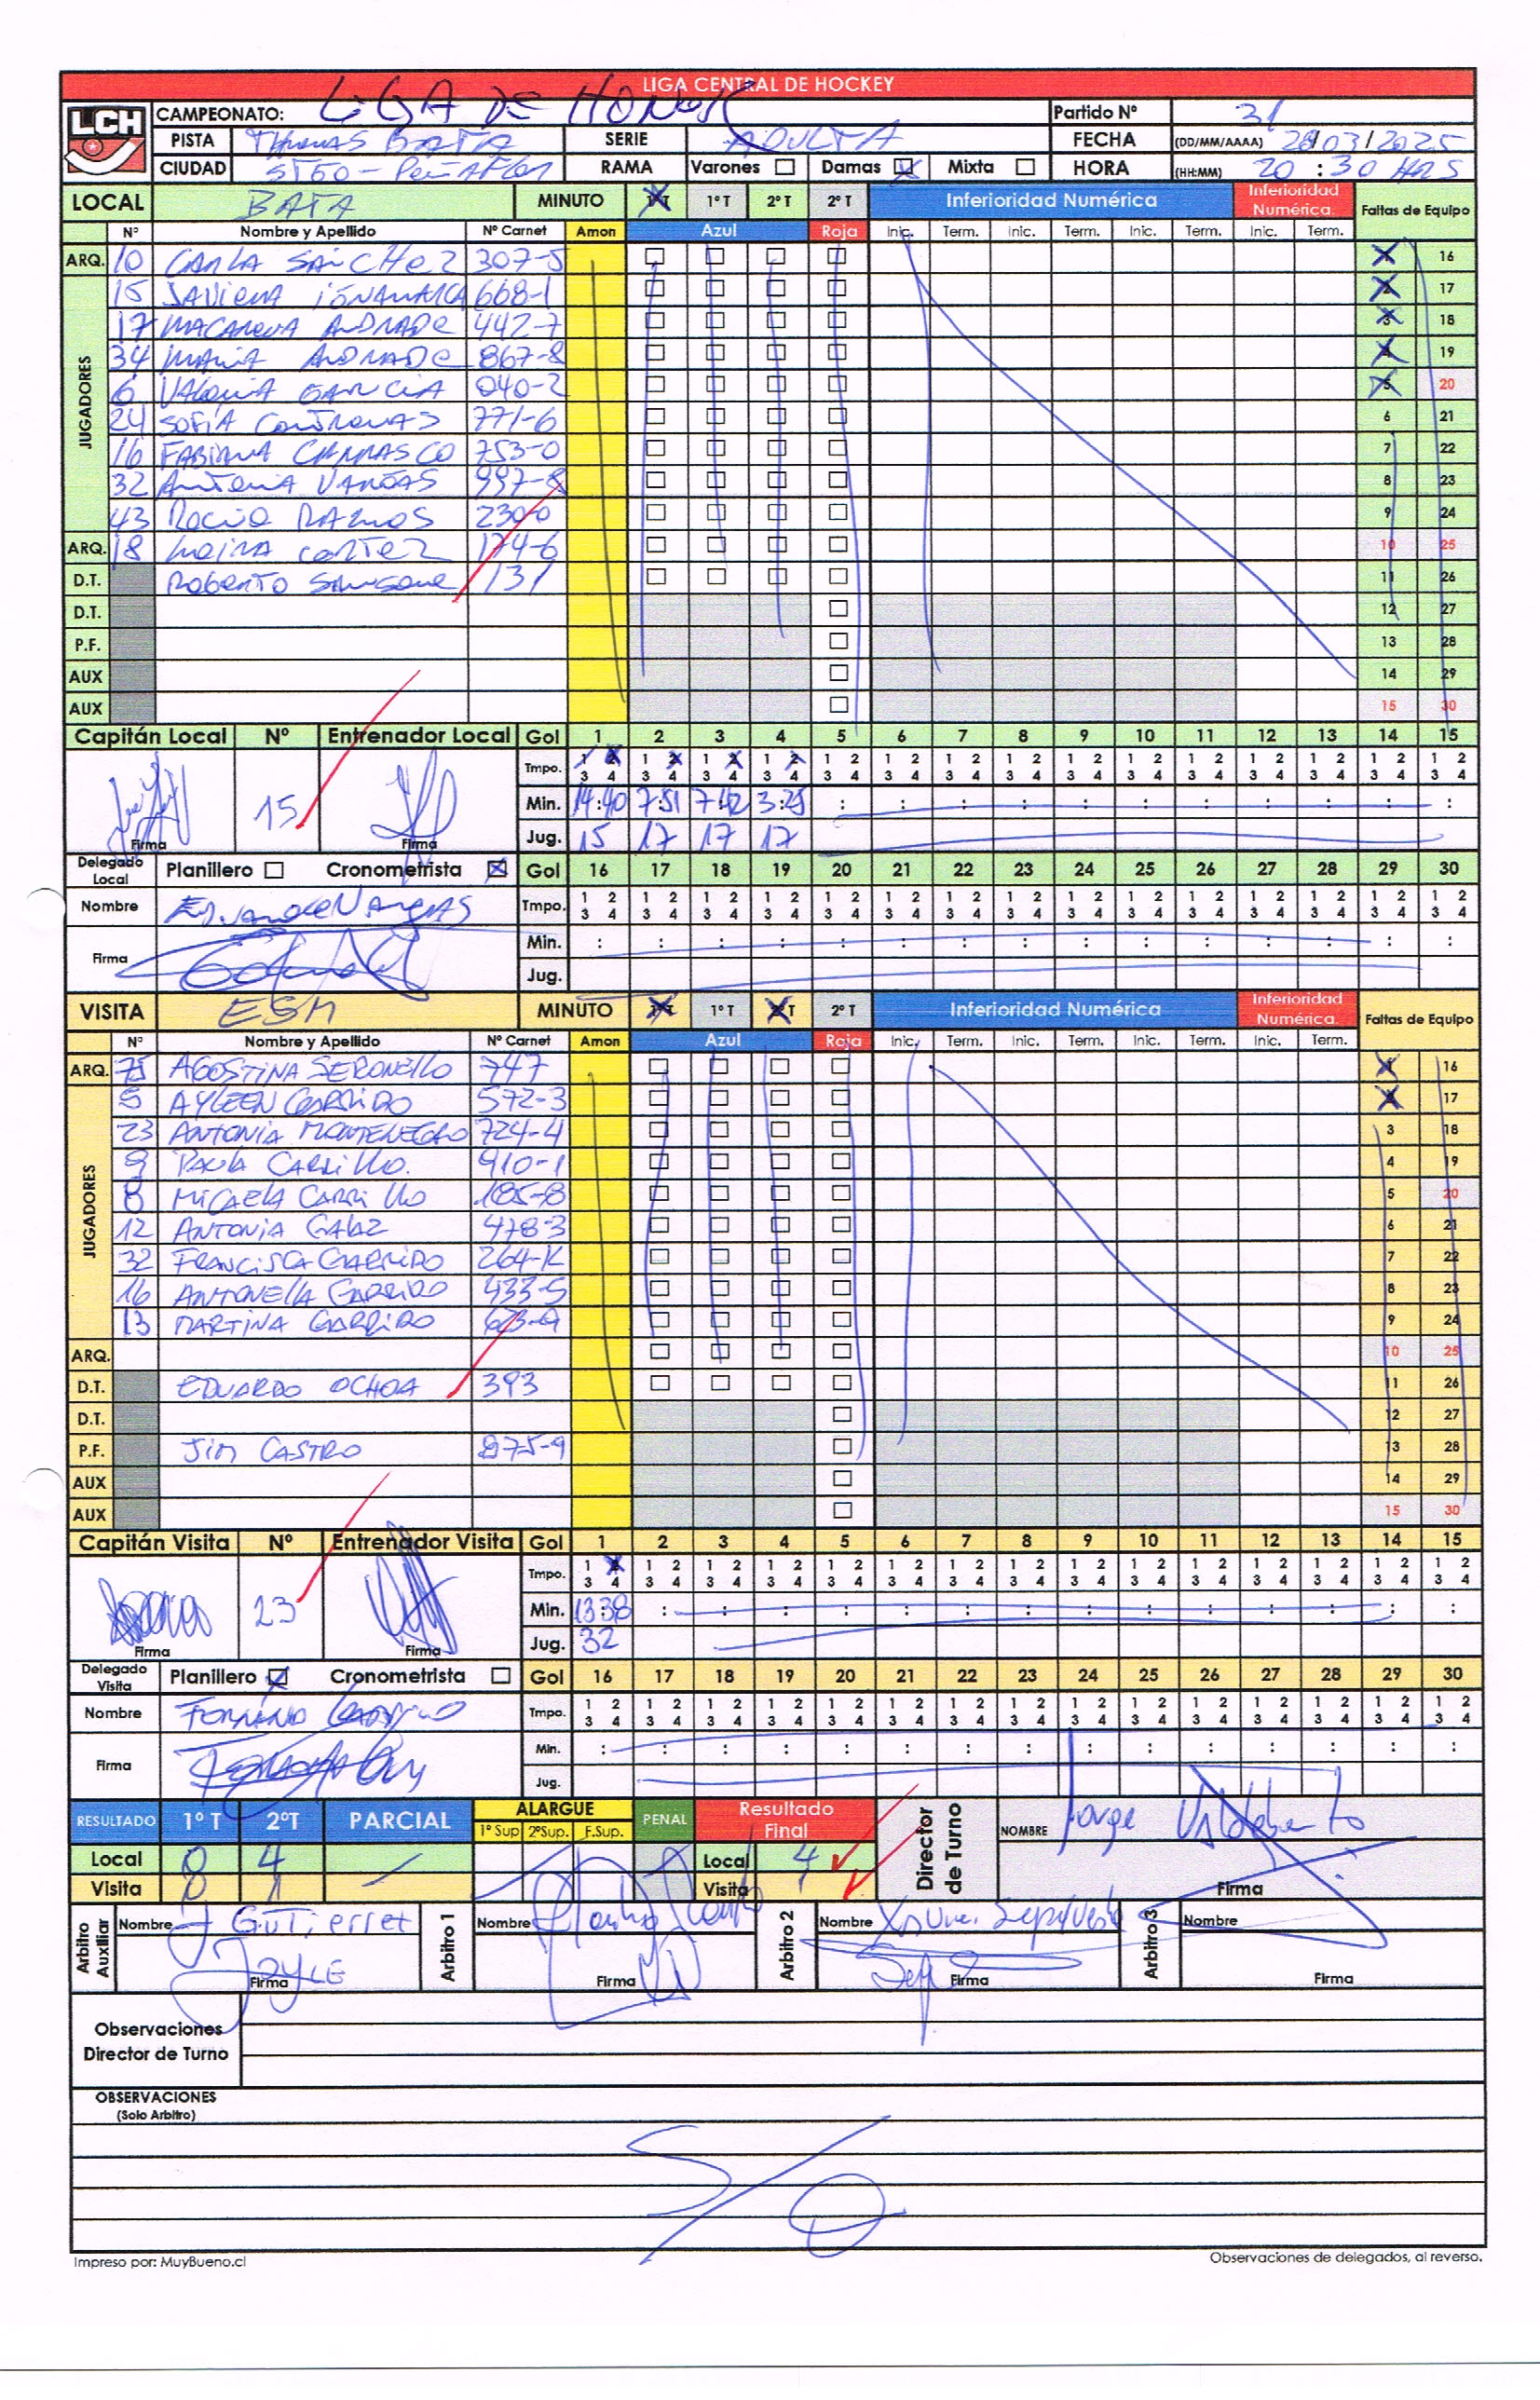 LIGA CENTRAL DE HOCKEY
LCH
CAMPEONATO: LIGA DE HONOR Partido Nº 31
PISTA THOMAS BATA SERIE ADULTA FECHA (DD/MM/AAAA) 28/03/2025
CIUDAD STGO - PEÑAFLOR RAMA Varones Damas X Mixta HORA (HH:MM) 20:30 HRS
LOCAL BATA MINUTO 1º T 1º T 2º T 2º T Inferioridad Numérica Inferioridad Numérica. Faltas de Equipo
Nº Nombre y Apellido Nº Carnet Amon Azul Roja Inic. Term. Inic. Term. Inic. Term. Inic. Term.
ARQ. 10 CARLA SANCHEZ 307-5 1 16
JUGADORES
15 JAVIERA 668-1 2 17
17 MACARENA ANDRADE 442-7 3 18
34 MARIA ANDRADE 867-8 4 19
6 VALERIA GARCIA 040-2 5 20
24 SOFÍA CONTRERAS 771-6 6 21
16 FABIANA CARRASCO 753-0 7 22
32 ANTONIA VARGAS 997-8 8 23
43 ROCIO RAMOS 230-0 9 24
ARQ. 18 MOIRA CORTEZ 174-6 10 25
D.T. ROBERTO 131 11 26
D.T. 12 27
P.F. 13 28
AUX 14 29
AUX 15 30
Capitán Local Nº Entrenador Local Gol 1 2 3 4 5 6 7 8 9 10 11 12 13 14 15
Tmpo. 1 2 3 4 1 2 3 4 1 2 3 4 1 2 3 4 1 2 3 4 1 2 3 4 1 2 3 4 1 2 3 4 1 2 3 4 1 2 3 4 1 2 3 4 1 2 3 4 1 2 3 4 1 2 3 4 1 2 3 4
15 Min. 14:40 7:51 7:42 3:25 : : : : : : : : : : :
Firma Firma Jug. 15 17 17 17
Delegado Local Planillero Cronometrista X Gol 16 17 18 19 20 21 22 23 24 25 26 27 28 29 30
Nombre Tmpo. 1 2 3 4 1 2 3 4 1 2 3 4 1 2 3 4 1 2 3 4 1 2 3 4 1 2 3 4 1 2 3 4 1 2 3 4 1 2 3 4 1 2 3 4 1 2 3 4 1 2 3 4 1 2 3 4 1 2 3 4
Firma Min. : : : : : : : : : : : : : : :
Jug.
VISITA ESM MINUTO 1º T 1º T 2º T 2º T Inferioridad Numérica Inferioridad Numérica. Faltas de Equipo
Nº Nombre y Apellido Nº Carnet Amon Azul Roja Inic. Term. Inic. Term. Inic. Term. Inic. Term.
ARQ. 75 AGOSTINA SERONELLO 747 1 16
JUGADORES
5 AYLEEN GARRIDO 572-3 2 17
23 ANTONIA MONTENEGRO 724-4 3 18
9 PAULA CARRILLO. 910-1 4 19
8 MICAELA CARRILLO 185-8 5 20
12 ANTONIA GALAZ 478-3 6 21
32 FRANCISCA GARRIDO 264-K 7 22
16 ANTONELLA GARRIDO 433-5 8 23
13 MARTINA GARRIDO 9 24
ARQ. 10 25
D.T. EDUARDO OCHOA 393 11 26
D.T. 12 27
P.F. JIM CASTRO 875-9 13 28
AUX 14 29
AUX 15 30
Capitán Visita Nº Entrenador Visita Gol 1 2 3 4 5 6 7 8 9 10 11 12 13 14 15
Tmpo. 1 2 3 4 1 2 3 4 1 2 3 4 1 2 3 4 1 2 3 4 1 2 3 4 1 2 3 4 1 2 3 4 1 2 3 4 1 2 3 4 1 2 3 4 1 2 3 4 1 2 3 4 1 2 3 4 1 2 3 4
23 Min. 13:38 : : : : : : : : : : : : : :
Firma Firma Jug. 32
Delegado Visita Planillero X Cronometrista Gol 16 17 18 19 20 21 22 23 24 25 26 27 28 29 30
Nombre Tmpo. 1 2 3 4 1 2 3 4 1 2 3 4 1 2 3 4 1 2 3 4 1 2 3 4 1 2 3 4 1 2 3 4 1 2 3 4 1 2 3 4 1 2 3 4 1 2 3 4 1 2 3 4 1 2 3 4 1 2 3 4
Firma Min. : : : : : : : : : : : : : : :
Jug.
RESULTADO 1º T 2ºT PARCIAL ALARGUE 1º Sup 2ºSup. F.Sup. PENAL Resultado Final Director de Turno NOMBRE Jorge
Local 0 4 Local 4
Visita 0 1 Visita 1 Firma
Arbitro Auxiliar Nombre J GUTIERREZ Arbitro 1 Nombre Arbitro 2 Nombre Sepulveda Arbitro 3 Nombre
Firma Firma Firma Firma
Observaciones
Director de Turno
OBSERVACIONES
(Solo Arbitro)
S/O
Impreso por: MuyBueno.cl Observaciones de delegados, al reverso.